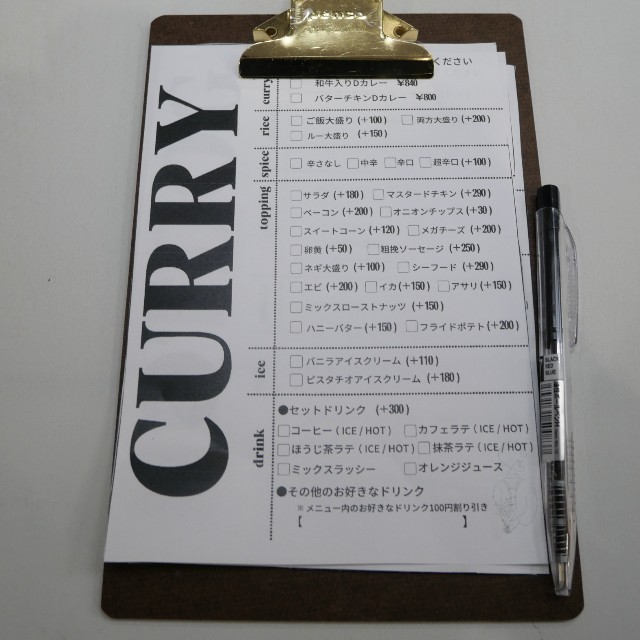 CURRY
ください
curry
和牛入りDカレー ¥840
バターチキンDカレー ¥800
rice
ご飯大盛り (+100) 両方大盛り (+200)
ルー大盛り (+150)
spice
辛さなし 中辛 辛口 超辛口 (+100)
topping
サラダ (+180) マスタードチキン (+290)
ベーコン (+200) オニオンチップス (+30)
スイートコーン (+120) メガチーズ (+200)
卵黄 (+50) 粗挽ソーセージ (+250)
ネギ大盛り (+100) シーフード (+290)
エビ (+200) イカ (+150) アサリ (+150)
ミックスローストナッツ (+150)
ハニーバター (+150) フライドポテト (+200)
ice
バニラアイスクリーム (+110)
ピスタチオアイスクリーム (+180)
drink
●セットドリンク (+300)
コーヒー ( ICE / HOT ) カフェラテ ( ICE / HOT )
ほうじ茶ラテ ( ICE / HOT ) 抹茶ラテ ( ICE / HOT )
ミックスラッシー オレンジジュース
●その他のお好きなドリンク
※ メニュー内のお好きなドリンク100円割り引き
【 】
BLACK
RED
BLUE